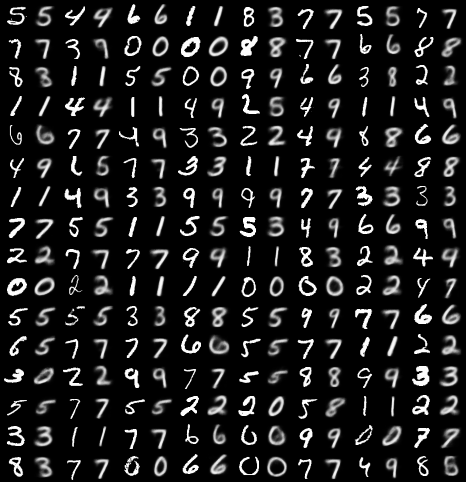 5 5 4 4 6 6 1 1 8 3 7 7 5 5 7 7
7 7 3 9 0 0 0 0 8 8 7 7 6 6 8 8
8 3 1 1 5 5 0 0 9 9 6 6 3 8 2 2
1 1 4 4 1 1 4 9 2 5 4 9 1 1 4 9
6 6 7 7 4 9 3 3 2 2 4 9 8 8 6 6
4 9 6 5 7 7 3 3 1 1 7 7 4 4 8 8
1 1 4 9 3 3 9 9 9 9 7 7 3 3 3 3
7 7 5 5 1 1 5 5 5 3 4 9 6 6 9 9
2 2 7 7 7 7 9 9 1 1 8 3 2 2 4 9
0 0 2 2 1 1 1 1 0 0 0 0 2 2 4 7
5 5 5 5 3 3 8 8 5 5 9 9 7 7 6 6
6 5 7 7 7 7 6 6 5 5 7 7 1 1 2 2
3 0 2 2 9 9 7 7 5 5 8 8 9 9 3 3
5 5 7 7 5 5 2 2 2 0 5 8 1 1 2 2
3 3 1 1 7 7 6 6 0 0 9 9 0 0 7 7
8 3 7 7 0 0 6 6 0 0 7 7 4 9 8